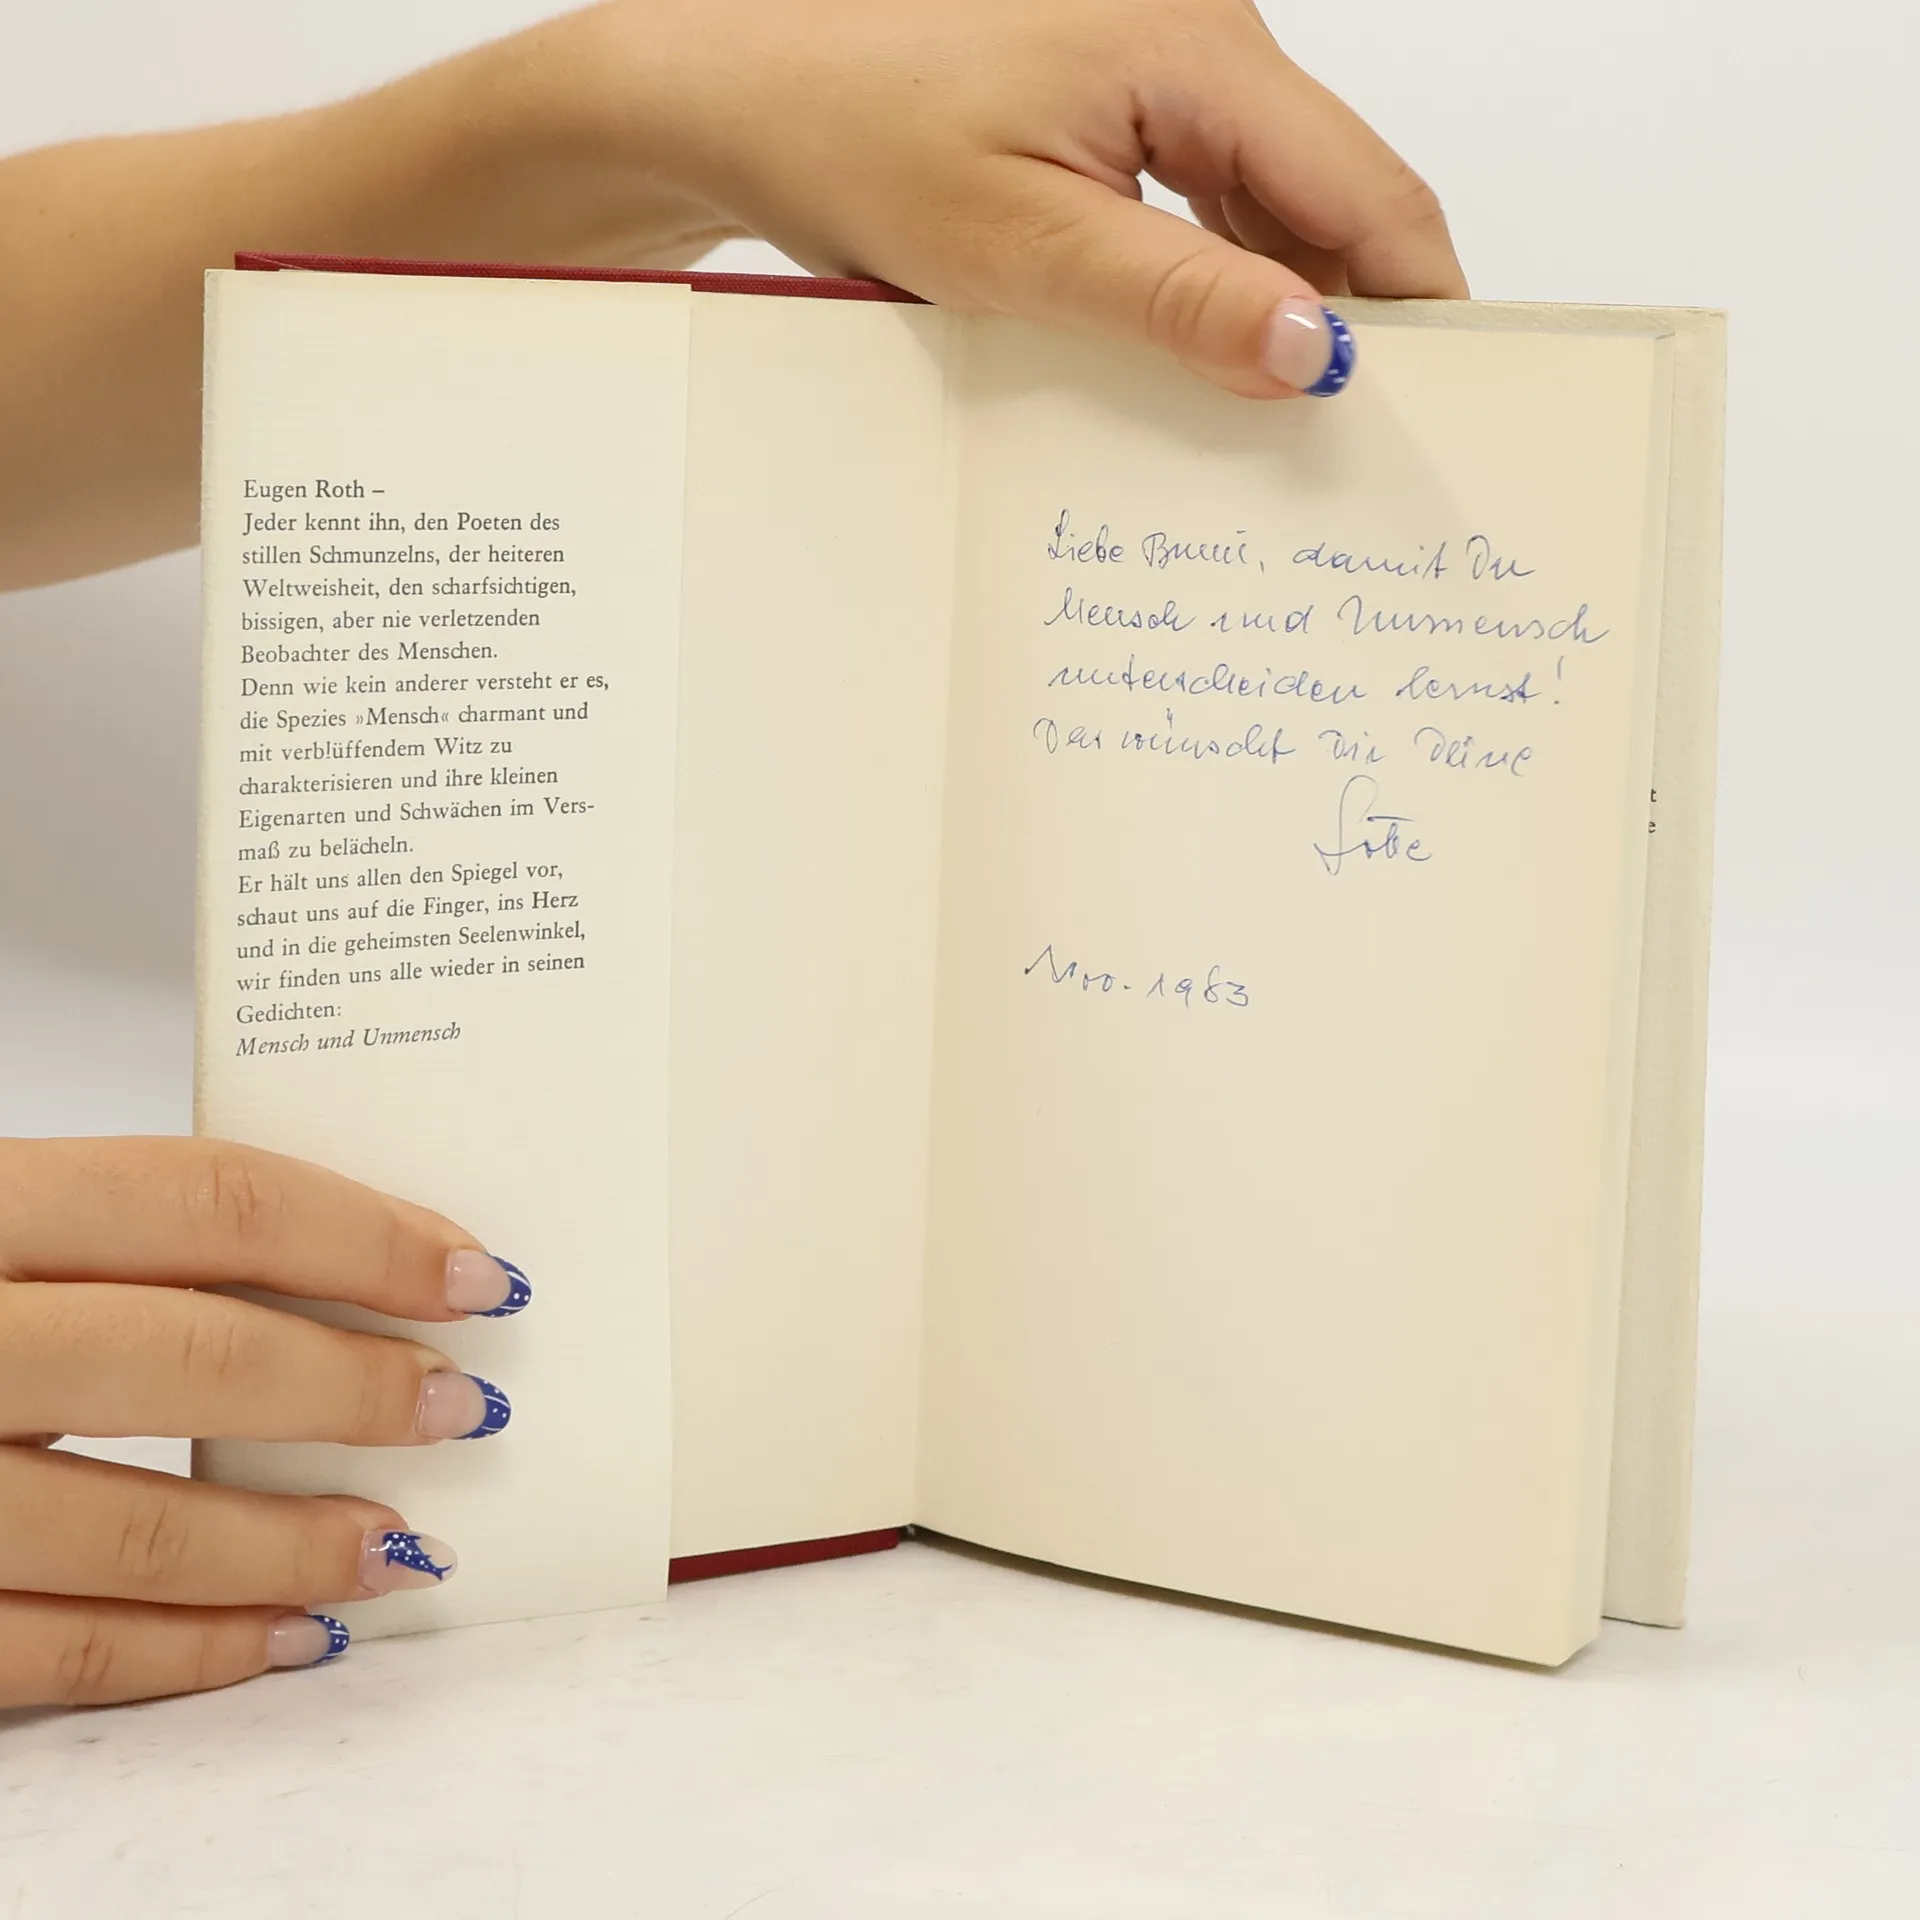 Eugen Roth –
Jeder kennt ihn, den Poeten des
stillen Schmunzelns, der heiteren
Weltweisheit, den scharfsichtigen,
bissigen, aber nie verletzenden
Beobachter des Menschen.
Denn wie kein anderer versteht er es,
die Spezies »Mensch« charmant und
mit verblüffendem Witz zu
charakterisieren und ihre kleinen
Eigenarten und Schwächen im Vers-
maß zu belächeln.
Er hält uns allen den Spiegel vor,
schaut uns auf die Finger, ins Herz
und in die geheimsten Seelenwinkel,
wir finden uns alle wieder in seinen
Gedichten:
Mensch und Unmensch
Liebe damit Du
Mensch und Unmensch
unterscheiden lernst!
Das wünscht Dir Deine
Nov. 1983
t
e